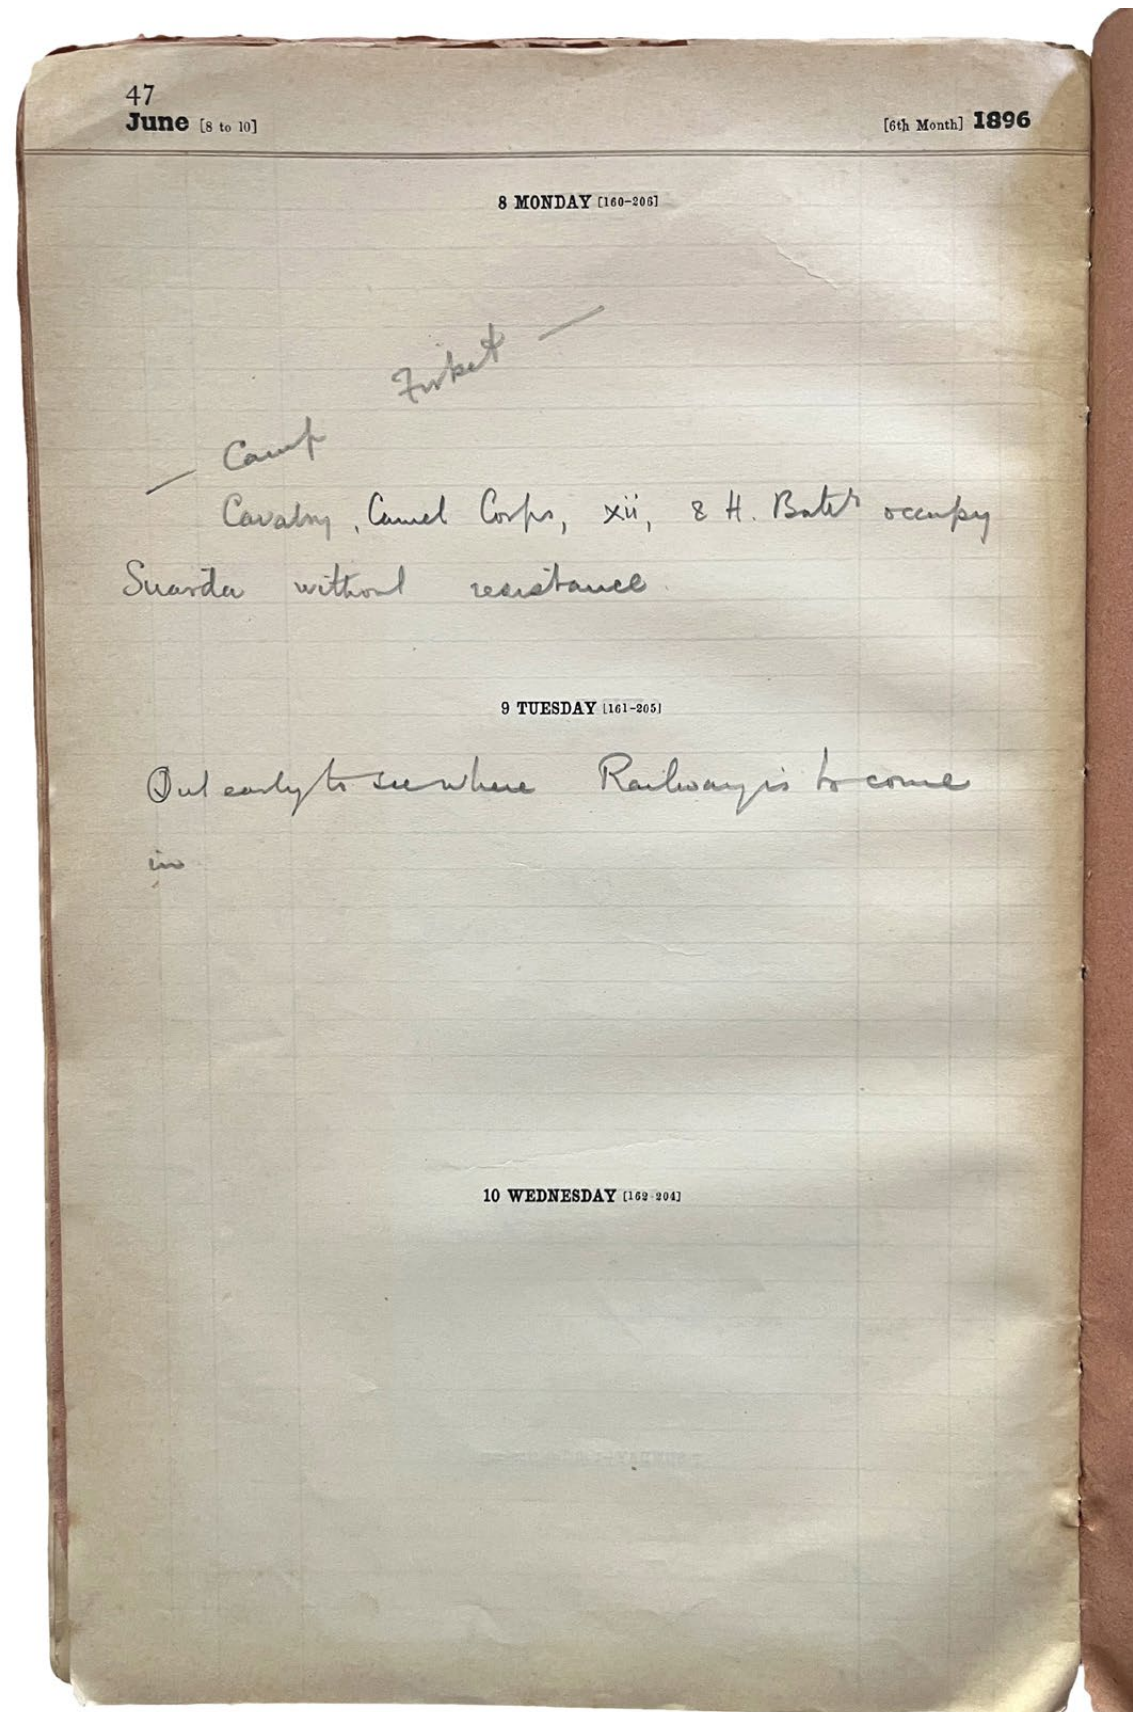 47
June [8 to 10] [6th Month] 1896
8 MONDAY [160-206]
Firket —
— Camp
Cavalry, Camel Corps, xii, & H. Baty occupy
Suarda without resistance.
9 TUESDAY [161-205]
Out early to see where Railway is to come
in
10 WEDNESDAY [162-204]